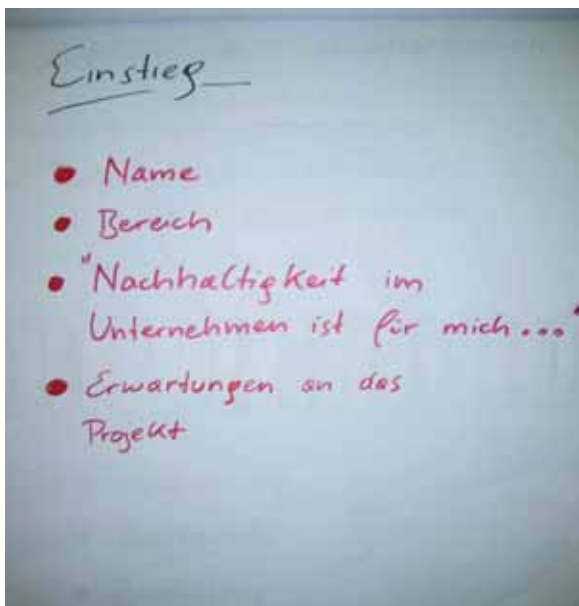 Einstieg
• Name
• Bereich
• "Nachhaltigkeit im
Unternehmen ist für mich..."
• Erwartungen an das
Projekt